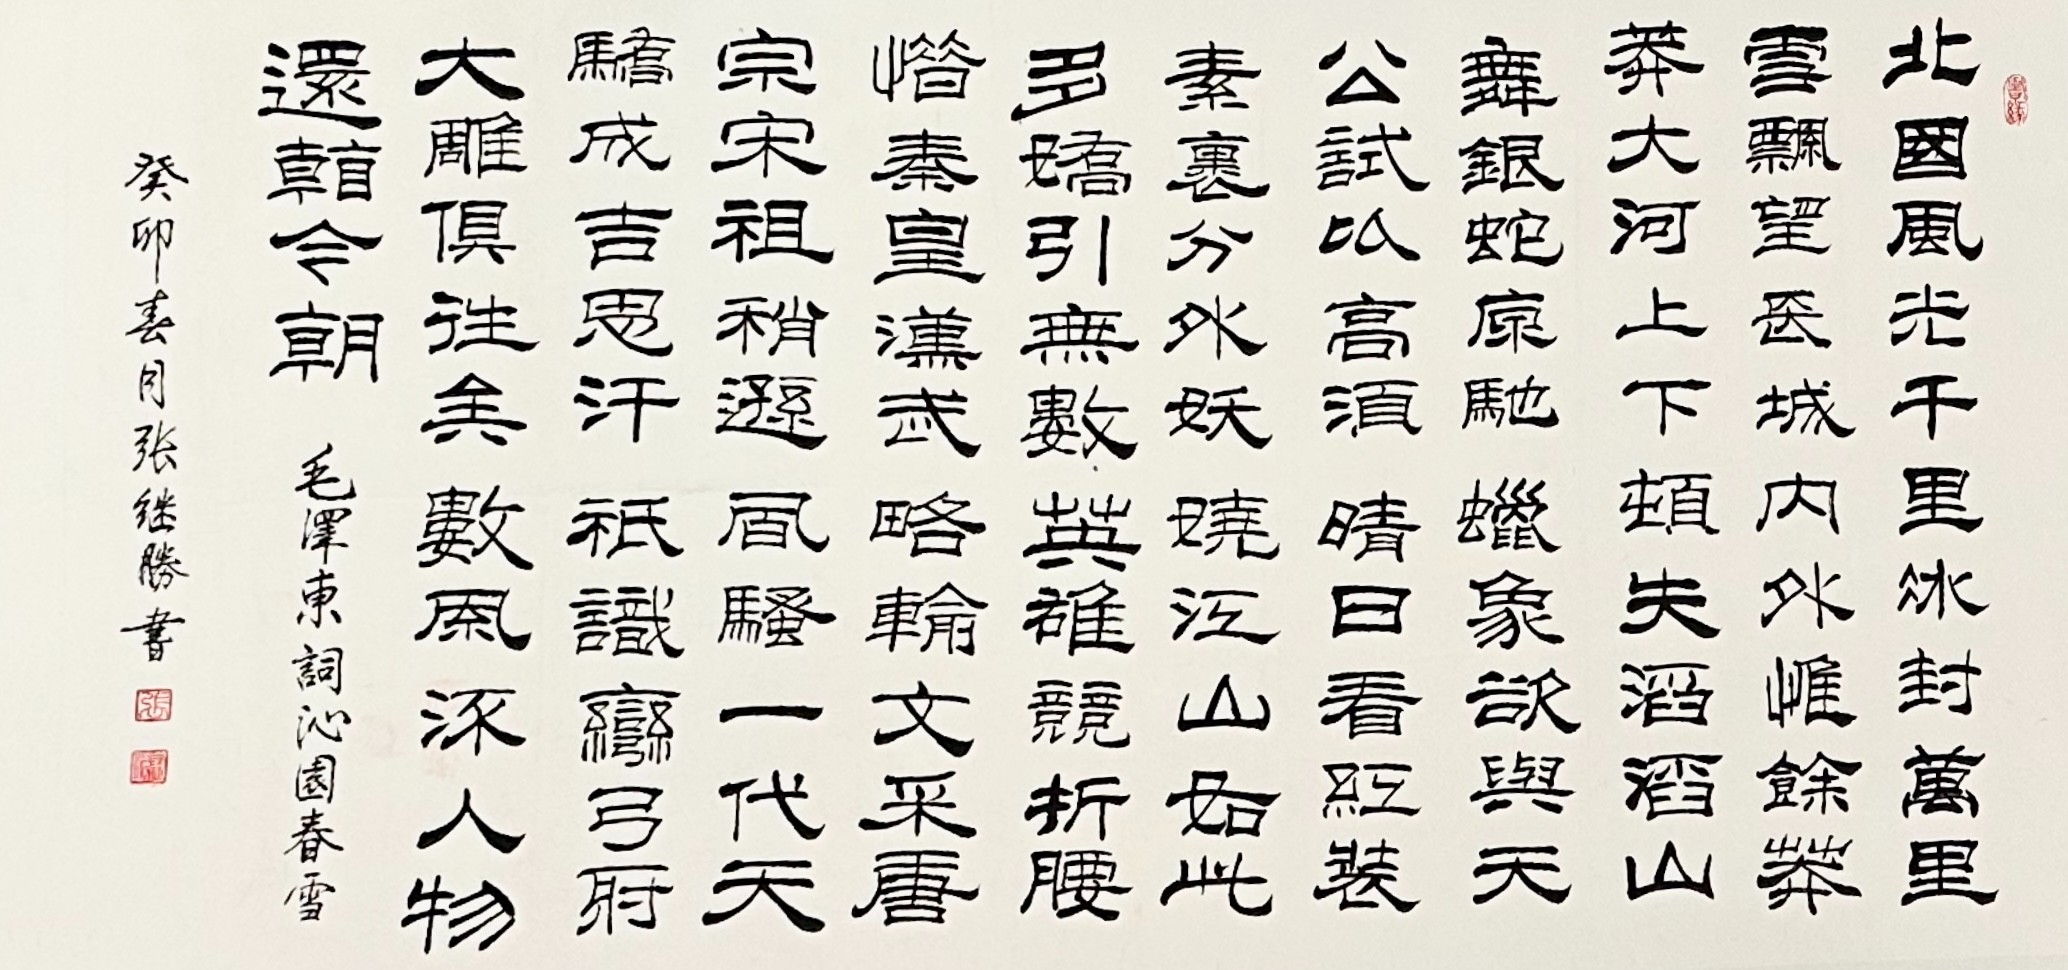 北國風光千里冰封萬里
雪飄望長城内外惟餘莽
莽大河上下頓失滔滔山
舞銀蛇原馳蠟象欲與天
公試比高須晴日看紅裝
素裹分外妖嬈江山如此
多嬌引無數英雄競折腰
惜秦皇漢武略輸文采唐
宗宋祖稍遜風騷一代天
驕成吉思汗祇識彎弓射
大雕俱往矣數風流人物
還看今朝
毛澤東詞沁園春雪
癸卯春月张继勝書